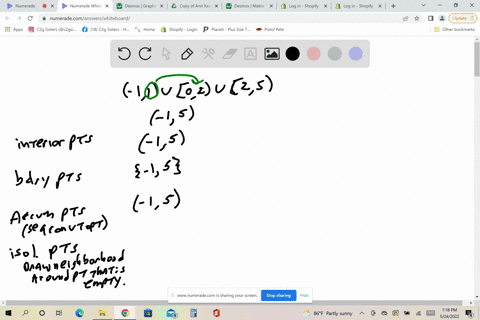 Numerade
Numerade Whi
Desmos | Graphi
Copy of Arin Ex
Desmos | Matri
Log in - Shopify
Log in - Shopify
numerade.com/answers/whiteboard/
Update
Apps
Welcome to Faceb...
C2g Sisters
Home
Shopify
Login - FOX
Placeit - Plus Size T...
Printful
C2g Sisters
Other Bookmarks
(-1,1) ∪ [0,2) ∪ [2,5)
(-1,5)
interior PTS (-1,5)
bdry pts {-1,5}
Accum PTS (-1,5)
(seq conv to pt)
isol PTS
Draw neighborhood
Around PT that is
empty.
www.numerade.com is sharing your screen.
Stop sharing
Hide
86°F Partly sunny
1:18 PM
5/24/2022